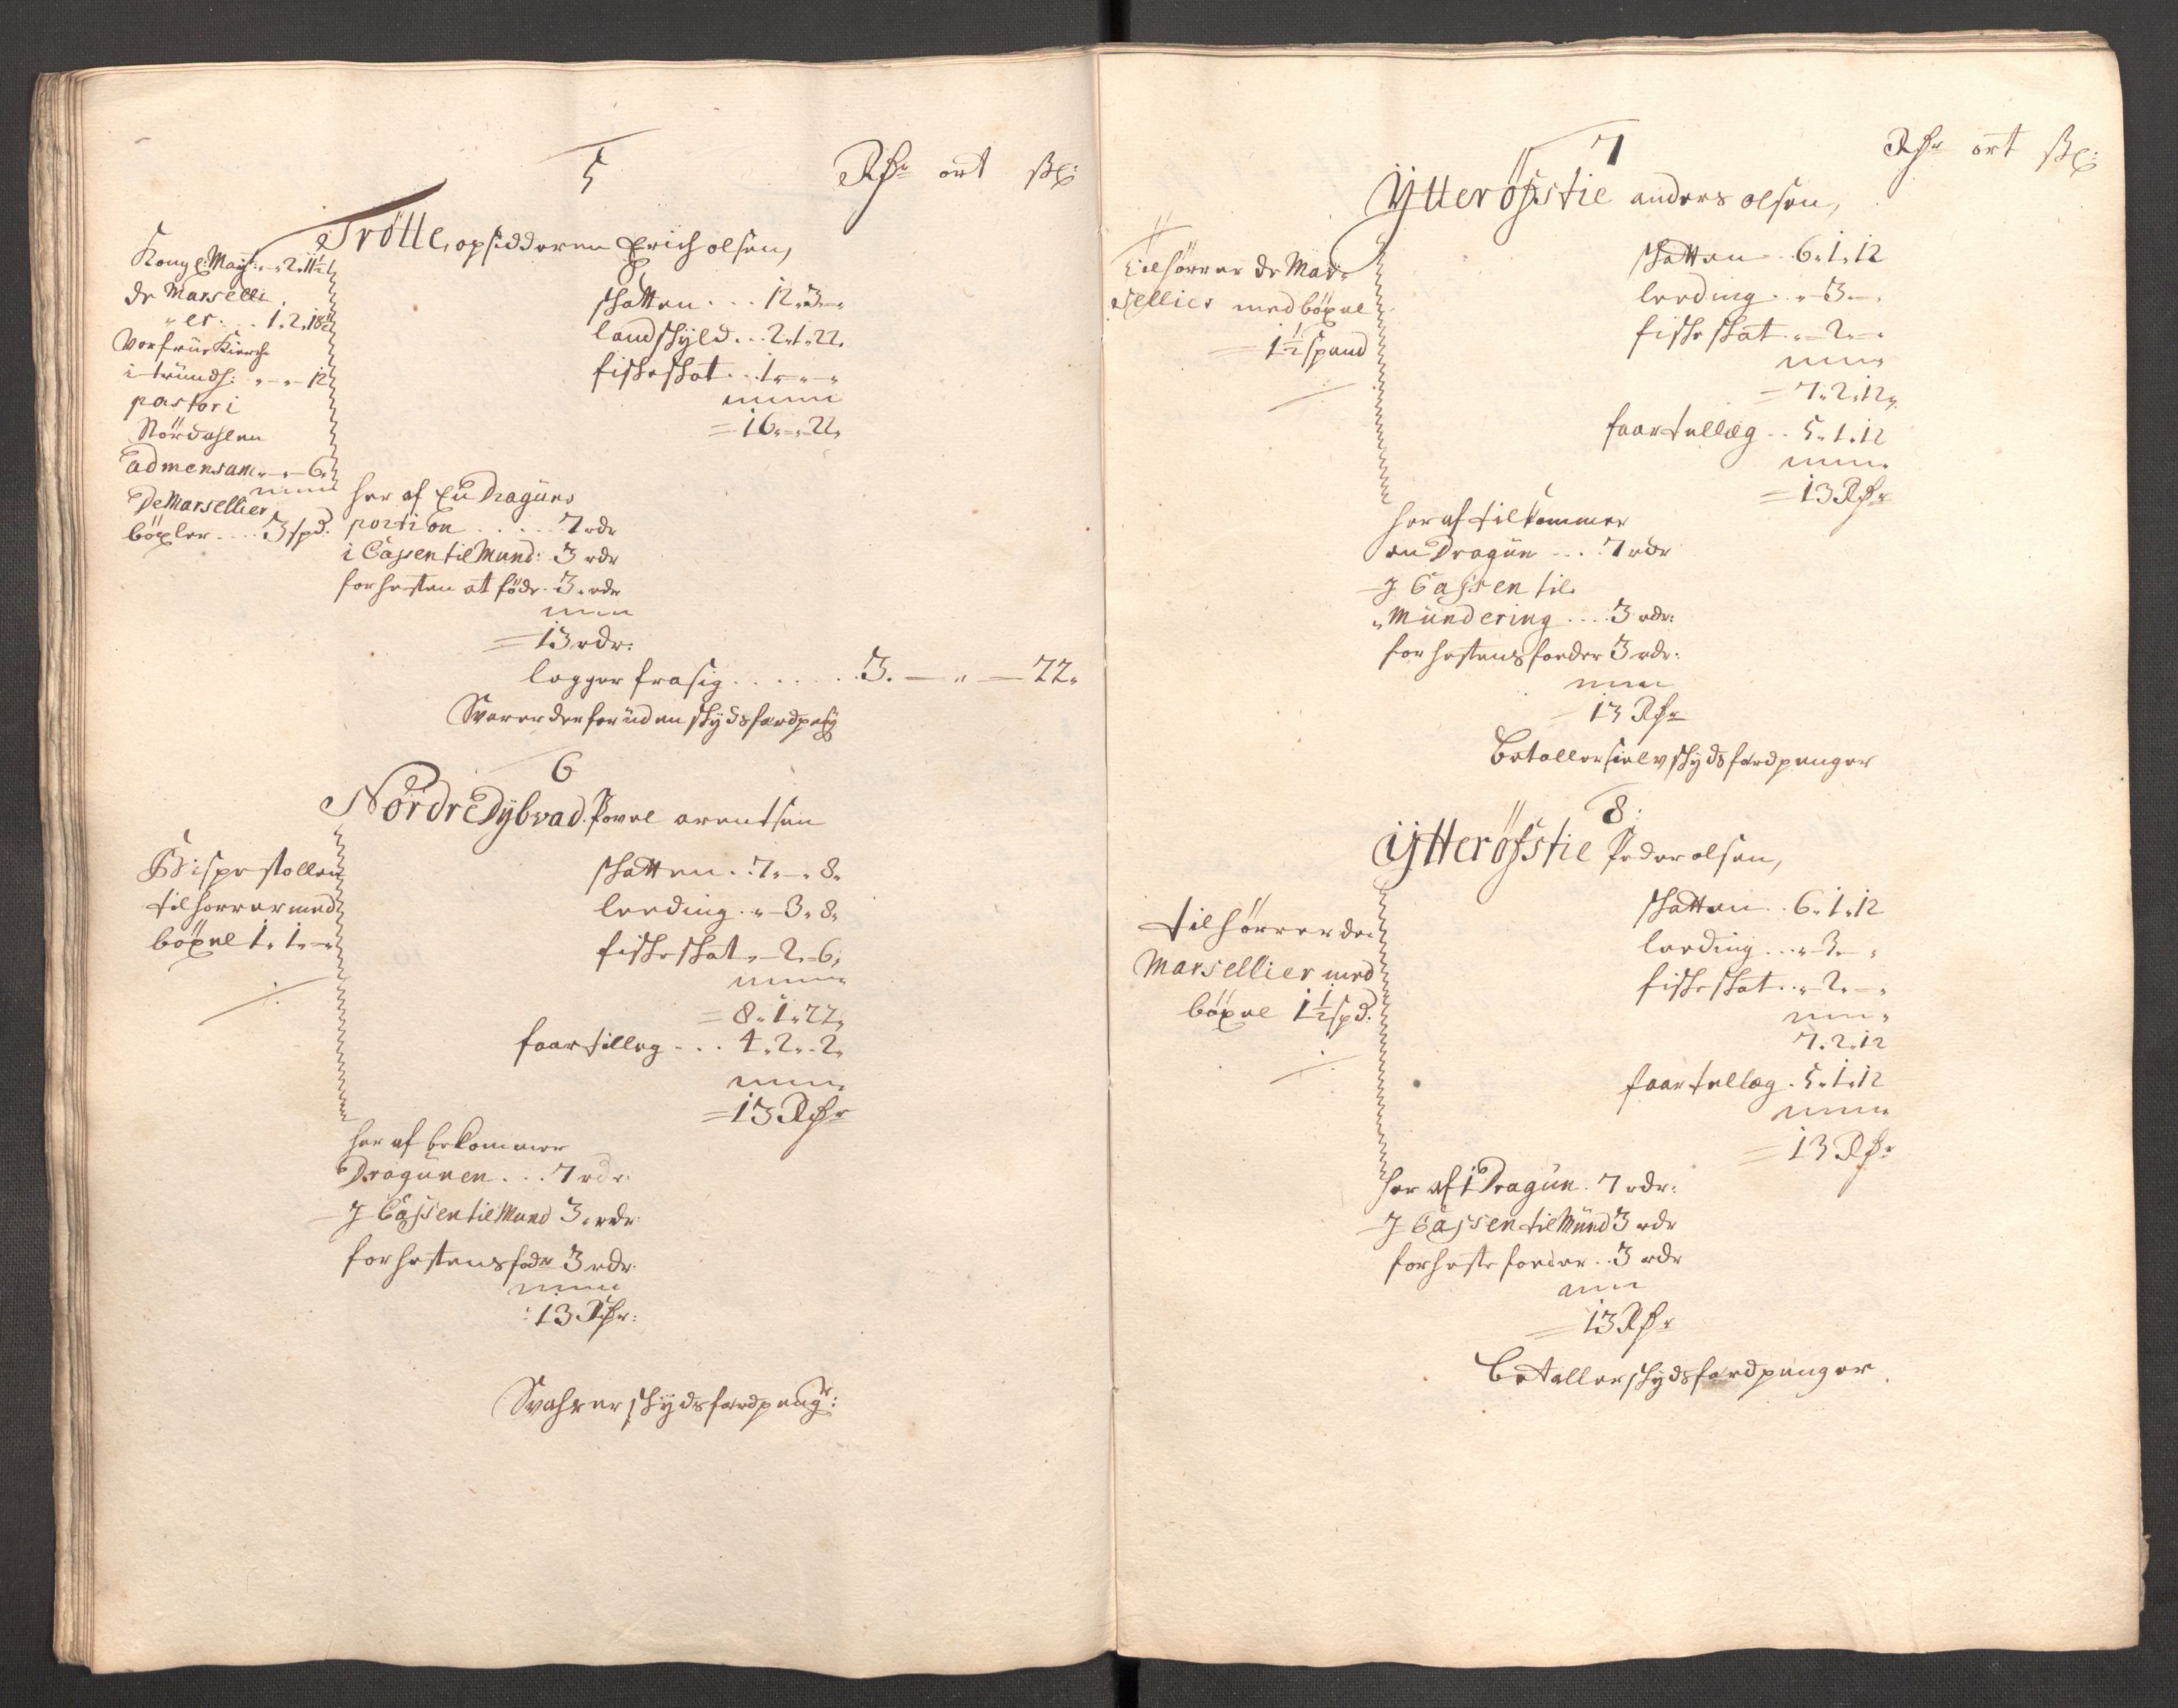 5
Rdr ort sk:
Trötte, opsidderen Erich olsen,
Kongl: Mayt: - „ 2 „ 11½
de Marselli
„ er: . . 1. 2. 18
Vor frue Kirche
i trundh: „ - „ - 12
pastori
Stördahlen
ad mensam „ - „ - 6
De Marsellier
böxler . . . . 3 spd.
skatten . . . 12. 3 - „
landskyld . . . 2. 1. 22.
fiske skat . . 1 „ - „ - „
= 16. - „ - 22,
her af En Draguns
portion . . . . . 7 rdr
i Cassen til Mund: 3 rdr
for hesten at föde . 3 . rdr
= 13 rdr:
legger fra sig . . . . . . . 3. — „ — 22.
Svarer der foruden skydsferdpeng
6
Nordre Dybvad. Povel arentsen
Bispestollen
tilhorrer med
böxel 1. 1. -
skatten . . 7. - . 8.
leeding . „ - 3. 8.
fiske skat „ - 2. - 6,
= 8. 1. 22,
faar tilleg . . . 4. 2. . 2.
= 13 Rdr
her af bekommer
Dragunen . . . 7 rdr.
J Cassen til Mund 3. rdr.
for hestens foder 3 rdr.
: 13 Rdr:
Svahrer skydsferdpeng:
7
Rdr ort sk:
Ytterößtie anders olsen,
tilhörrer de Mar-
sellier med böxel
= 1½ spand
skatten . 6. 1. 12
leeding . . „ - 3. - .
fiske skat . „ - 2. - „
= 7. 2. 12,
faar tellæg . . 5. 1. 12
= 13 Rdr
her af tilkommer
en Dragun . . . 7 rdr
J Cassen til
„ Mundering . . . . 3 rdr:
for hestens foeder 3 rdr:
13 Rdr
betaller sielv skydsferdpenger
8:
Ytterößtie Peder olsen,
tilhörrer de
Marsellier med
böxel 1½ spd.
skatten . . 6. 1. 12
leeding . . . „ - 3. - „
fiske skat . . „ - 2. - „
7. 2. 12
faar tellæg . 5. 1. 12
= 13 Rdr
her af 1 Dragun . 7 rdr:
J Cassen til Mund 3 rdr
for heste foeder . . 3 rdr
= 13 Rdr
betaller skydsferdpenger.